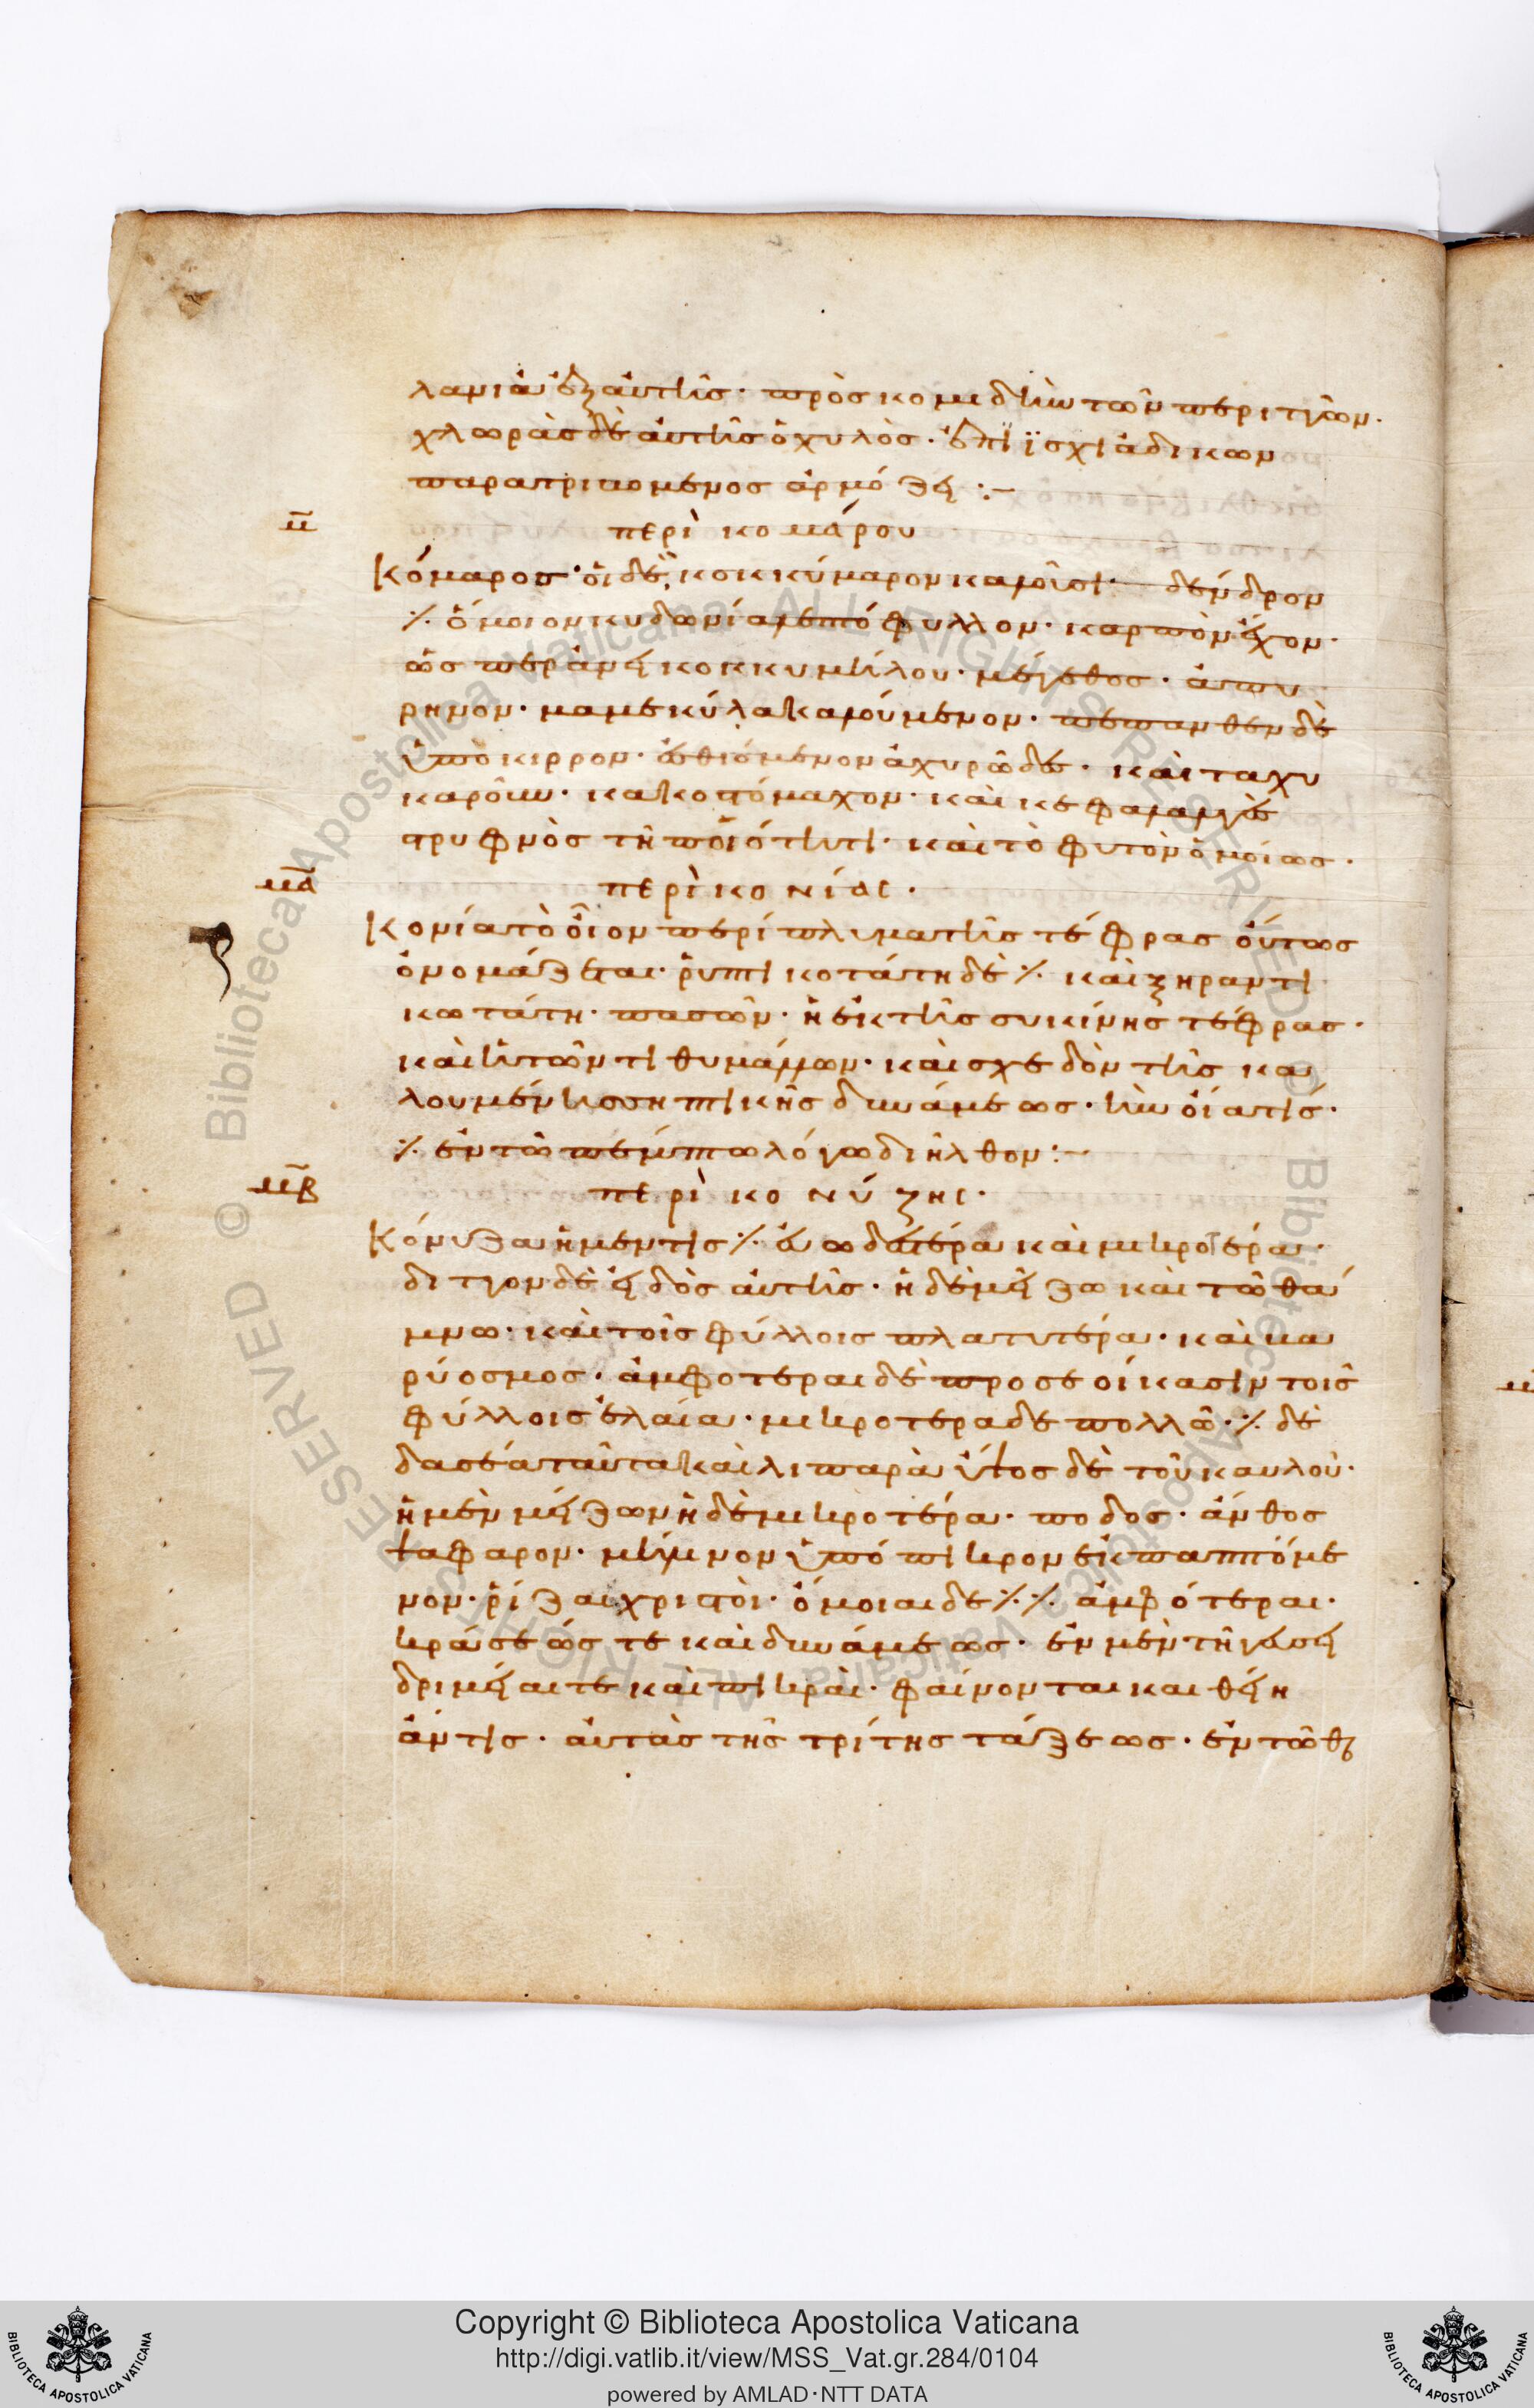 λαμια ἐξ αυτῆς· πρὸς κομιδὴν τῶν περιττῶν·
χλωρᾶς δὲ αὐτῆς ὁ χυλὸς· ἐπὶ ἰσχιάδικων
παρατριβομενος ἁρμόζει :–
μ̄ περὶ κομάρου
Κόμαρος· οἱ δὲ κοκκύμαρον καλοῦσι· δένδρον
⁒ ὅμοιον κυδωνία λεπτόφυλλον· καρπὸν ἔχον·
ὡς περὰν εἰ κοκκυμήλου· μέγεθος· ἀπυ
ρηνον· μαμεκύλα καλούμενον· πεπανθεν δὲ
ὑπόκιρρον· ἐσθιόμενον ἀχυρῶδες· καὶ ταχυ
καροῦν· κακοστόμαχον· καὶ κεφαλαλγὲς
στρυφνὸς τῆ ποιότητι· καὶ τὸ φυτὸν ὁμοίως·
μᾱ περὶ κονίας·
Κονία τὸ οἷον περίπλυμα τῆς τέφρας οὕτως
ὀνομάζεται· ῥυπτικοτάτη δὲ ⁒ καὶ ξηραντι
κωτάτη· πασῶν· ἡ ἐκ τῆς συκίνης τέφρας·
καὶ ἡ τῶν τιθυμάλλων· καὶ σχεδὸν τῆς κα
λουμένης σηπτικῆς δυνάμεως· ἣν οἵα τίς·
⁒ ἐν τῶ πέμπτω λόγω διῆλθον :–
μ̄β περὶ κονύζης·
Κόνυζα ἡ μέν τις ⁒ εὐωδεστέρα καὶ μικροτέρα·
διττὸν δὲ εἶδὸς αὐτῆς· ἡ δὲ μείζω καὶ τῶ θά
μνω· καὶ τοῖς φύλλοις πλατυτέρα· καὶ βα
ρύοσμος· ἀμφοτεραι δὲ προσεοίκασιν τοῖς
φύλλοις ἐλαία· μικροτερα δε πολλῶ· ⁒ δὲ
δασέα ταῦτα καὶ λιπαρὰ ὕψος δὲ τοῦ καυλοῦ·
ἡ μὲν μείζων ἡ δὲ μικροτέρα· ποδος· ἄνθος
ψαφαρον· μήλινον ὑπόπικρον ἐκπαππόυμε
νον· ῥίζαι ἄχριστοι· ὅμοιαι δε ⁒ ⁒ ἀμφότεραι·
κράσεώς τε καὶ δυνάμεως· ἐν μὲν τῆ γεύσει
δριμεῖαι τε καὶ πικραὶ· φαίνονται και θείη
ἄν τις· αὐτὰς τῆς τρίτης τάξεως· ἐν τῶ θερ
Copyright © Biblioteca Apostolica Vaticana
http://digi.vatlib.it/view/MSS_Vat.gr.284/0104
powered by AMLAD·NTT DATA